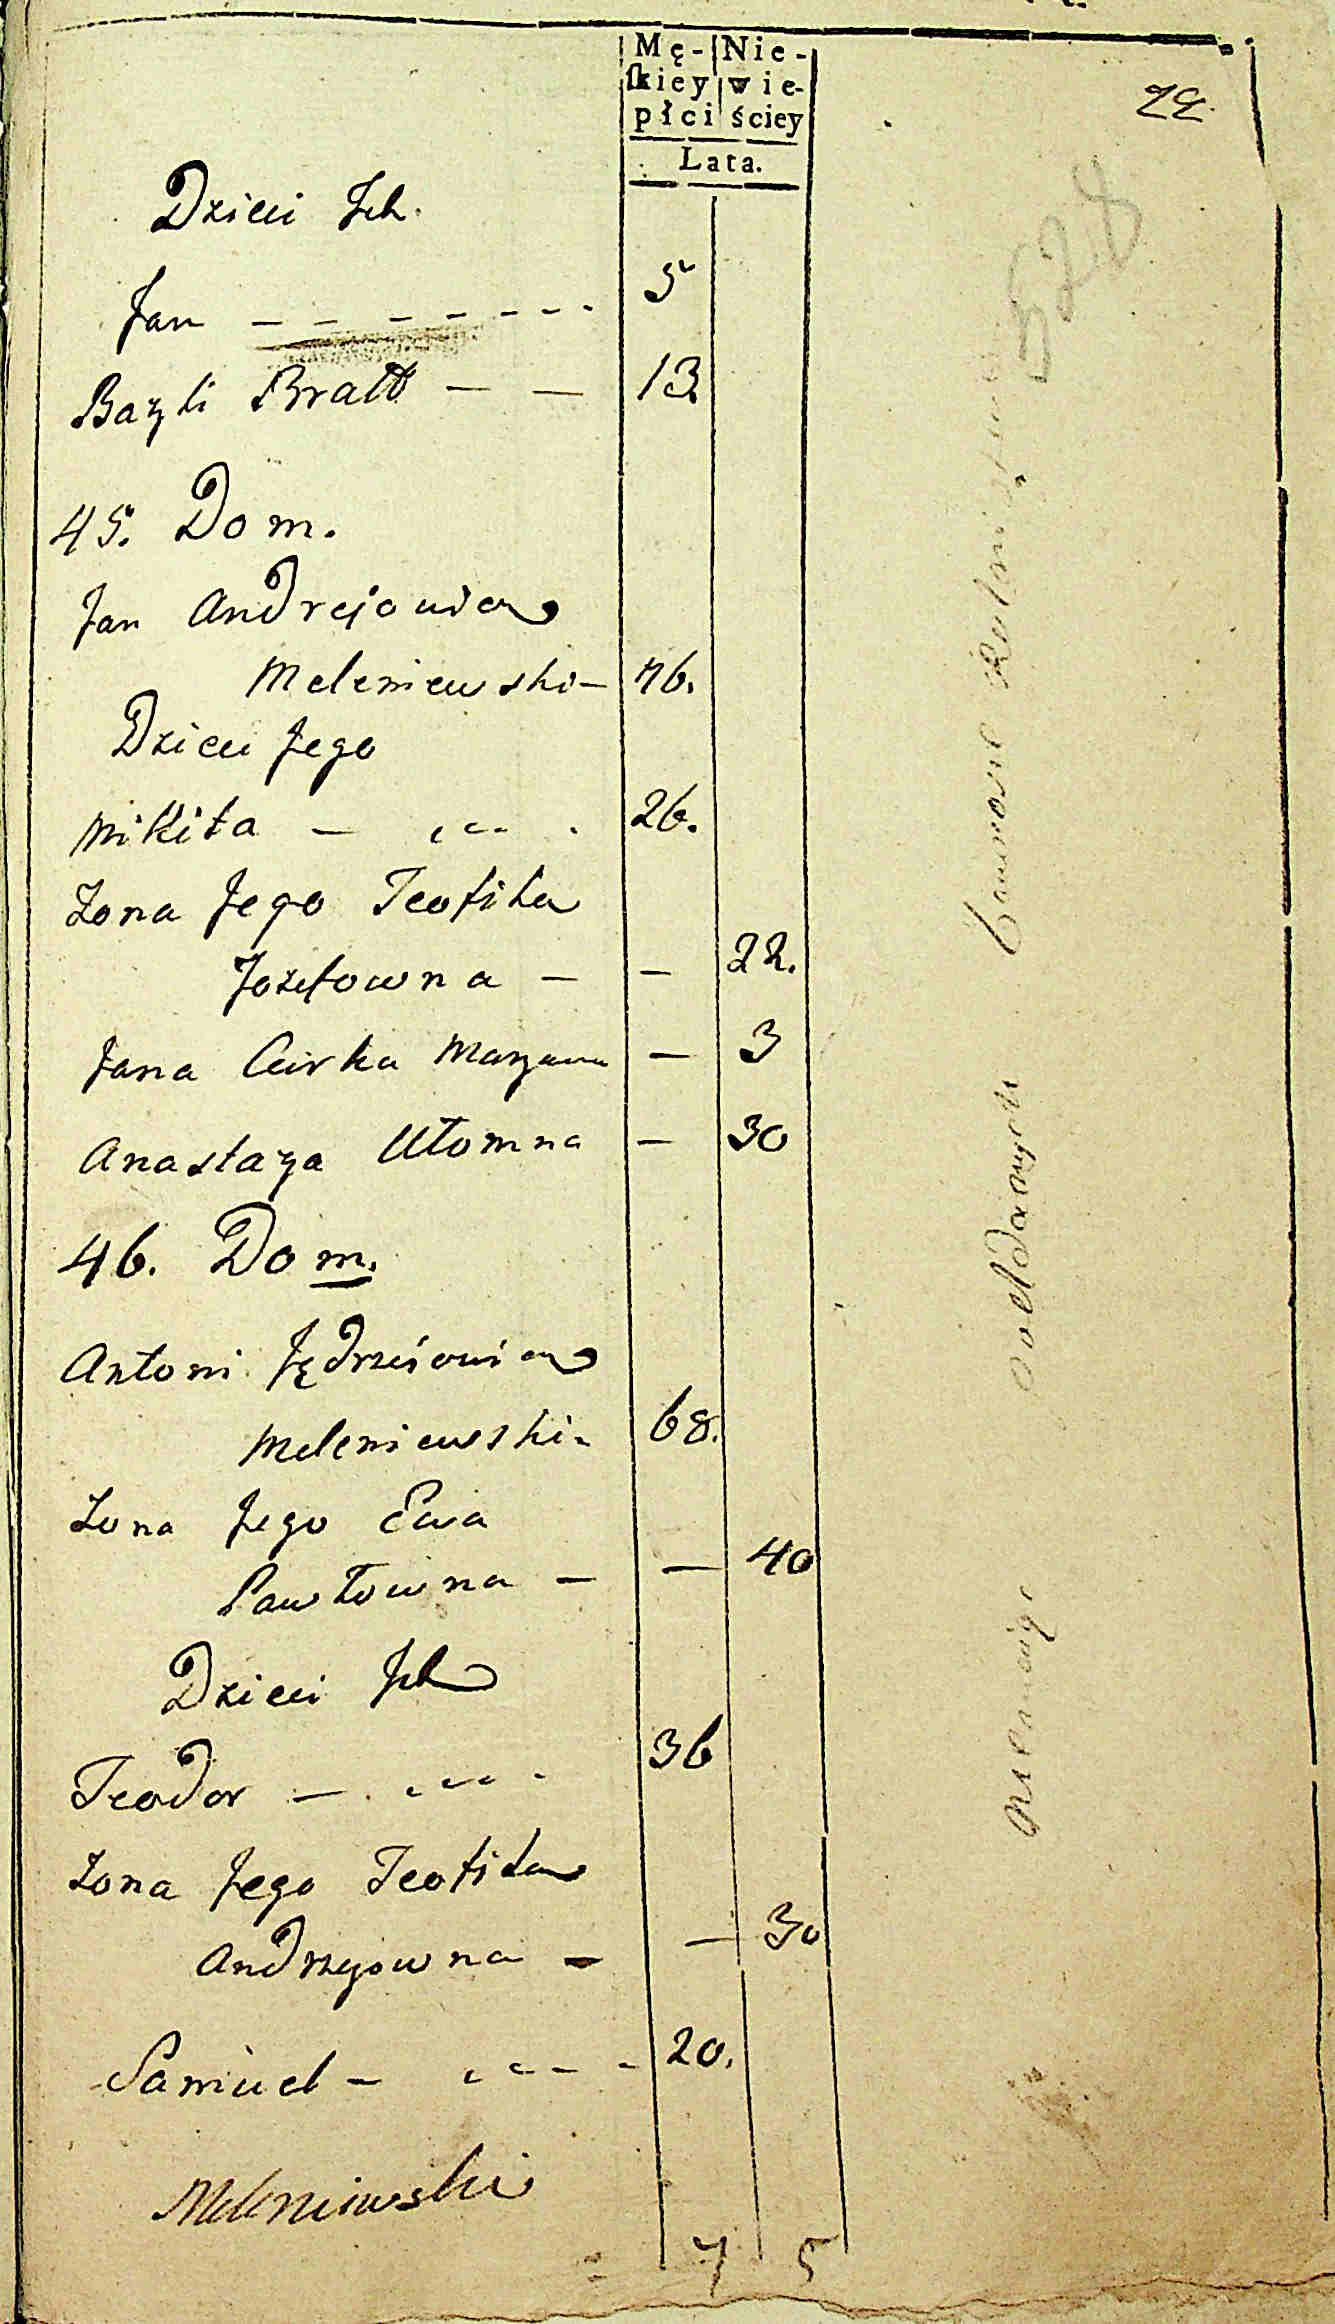 Mę- Nie-
ſkiey wie-
płci ściey
Lata.
22.
528
Dzieci Ich.
Jan - - - - - - - 5
Bazyli Bratt - - 13.
45. Dom.
Jan Andrejowicz
Meleniewski - 46.
Dzieci Jego
Mikita - - - - . 26.
Zona Jego Teofila
Jozefowna - - 22.
Jana Curka Maryanna - 3
Anastazya Ułomna - 30
46. Dom.
Antoni Jędrzeiowicz
Meleniewski - 68.
Zona Jego Ewa
Pawłowna - - 40
Dzieci Ich
Teodor - - - - - 36
Zona Jego Teofila
Andrzejowna - - 30
Samuel - - - - - 20.
Meleniewski
7 5